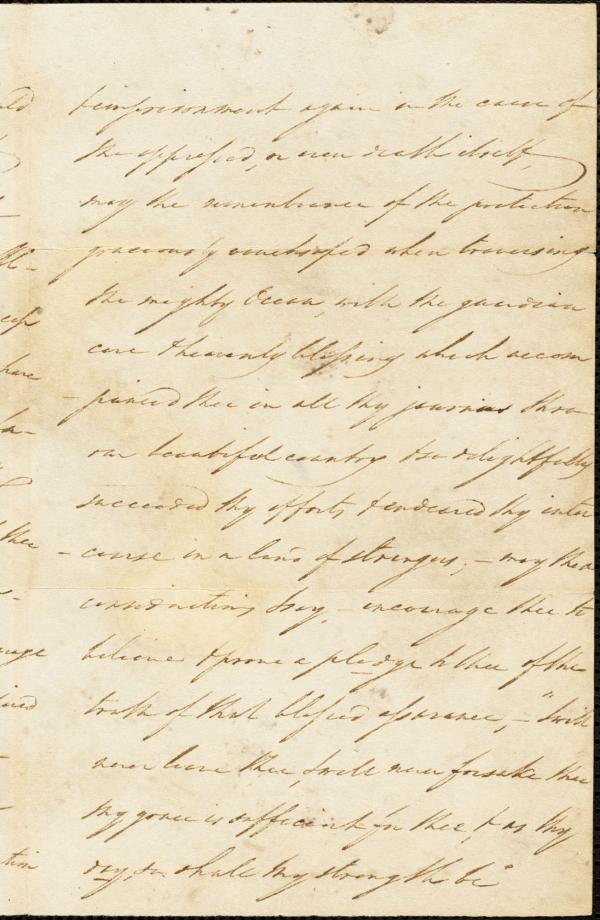 & imprisonment again in the cause of
the oppressed, or even death itself,
may the remembrance of the protection
graciously vouchsafed when traversing
the mighty Ocean, with the guardian
care & heavenly blessing which accom
-panied thee in all thy journies thro
our beautiful country & so delightfully
succeeded thy efforts & endeared thy inter
-course in a land of strangers, – may these
considerations I say, – encourage thee to
believe & prove a pledge to thee of the
truth of that blessed assurance, – "I will
never leave thee, I will never forsake thee
my grace is sufficient for thee, & as thy
day, so shall thy strength be"